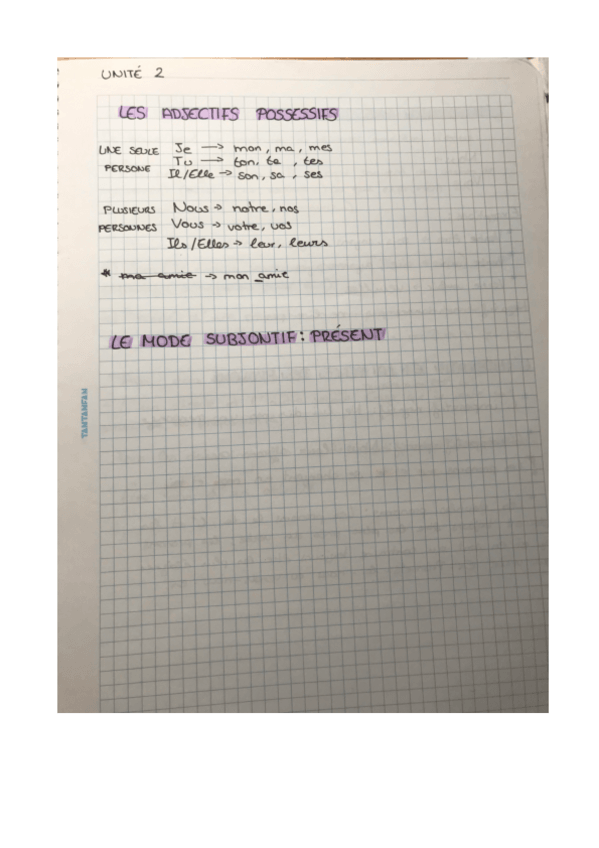 UNITÉ 2
LES ADJECTIFS POSSESSIFS
UNE SEULE PERSONE
Je → mon, ma, mes
Tu → ton, ta, tes
Il/Elle → son, sa, ses
PLUSIEURS PERSONNES
Nous → notre, nos
Vous → votre, vos
Ils/Elles → leur, leurs
* ma amie → mon amie
LE MODE SUBJONTIF: PRÉSENT
TANTANFAN